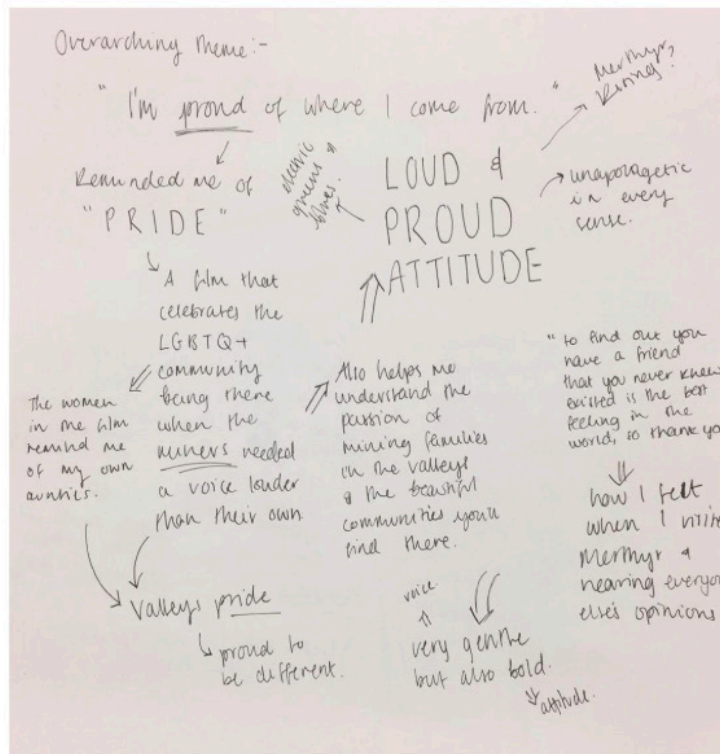 Overarching theme:-
"I'm proud of where I come from."
Merthyr
Rising?
Reminded me of
"PRIDE"
electric
greens &
blues.
LOUD &
PROUD
ATTITUDE
unapologetic
in every
sense.
A film that
celebrates the
LGBTQ+
community
being there
when the
miners needed
a voice louder
than their own
The women
in the film
remind me
of my own
aunties.
Also helps me
understand the
passion of
mining families
in the valleys
& the beautiful
communities you'll
find there.
"to find out you
have a friend
that you never knew
existed is the best
feeling in the
world, so thank you
how I felt
when I
Merthyr &
hearing
else's opinions
Valleys pride
proud to
be different.
voice
very gentle
but also bold.
attitude.